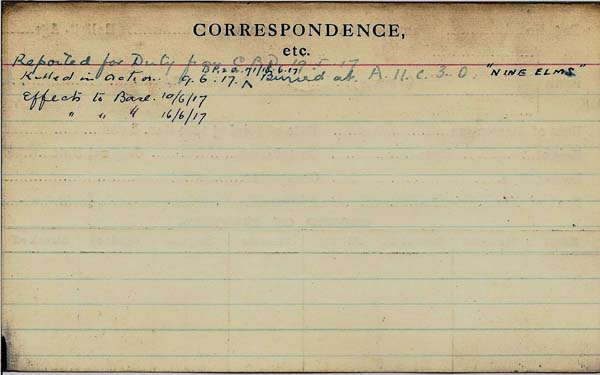 CORRESPONDENCE,
etc.
Reported for Duty from C.B.D. 19.5.17
Killed in action 9.6.17. Buried at A.11.c.3.0. "NINE ELMS"
Effects to Base. 10/6/17
" " " 16/6/17